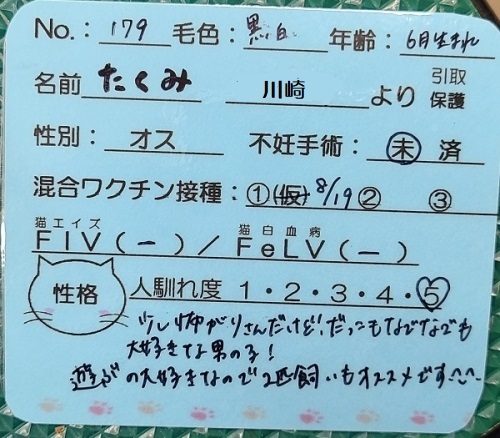 No.: 179 毛色: 黒白 年齢: 6月生まれ
名前 たくみ 川崎 より 引取 保護
性別: オス 不妊手術: 未 済
混合ワクチン接種: ①(仮) 8/19 ② ③
猫エイズ 猫白血病
FIV(ー)/ FeLV(ー)
性格 人馴れ度 1・2・3・4・5
少し怖がりさんだけど、だっこもなでなでも
大好きな男の子!
遊ぶの大好きなので2匹飼いもオススメです^^